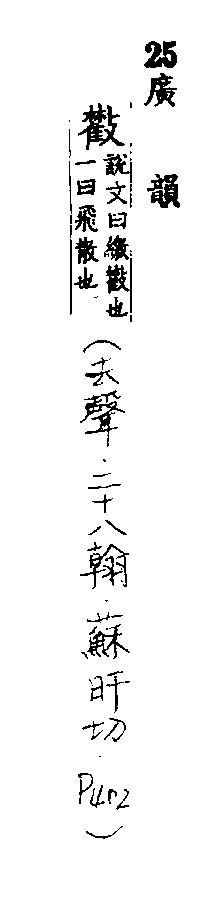 25廣韻
𢿱
說文曰繳𢿱也
一曰飛散也
（去聲．二十八翰．蘇旰切．P402）